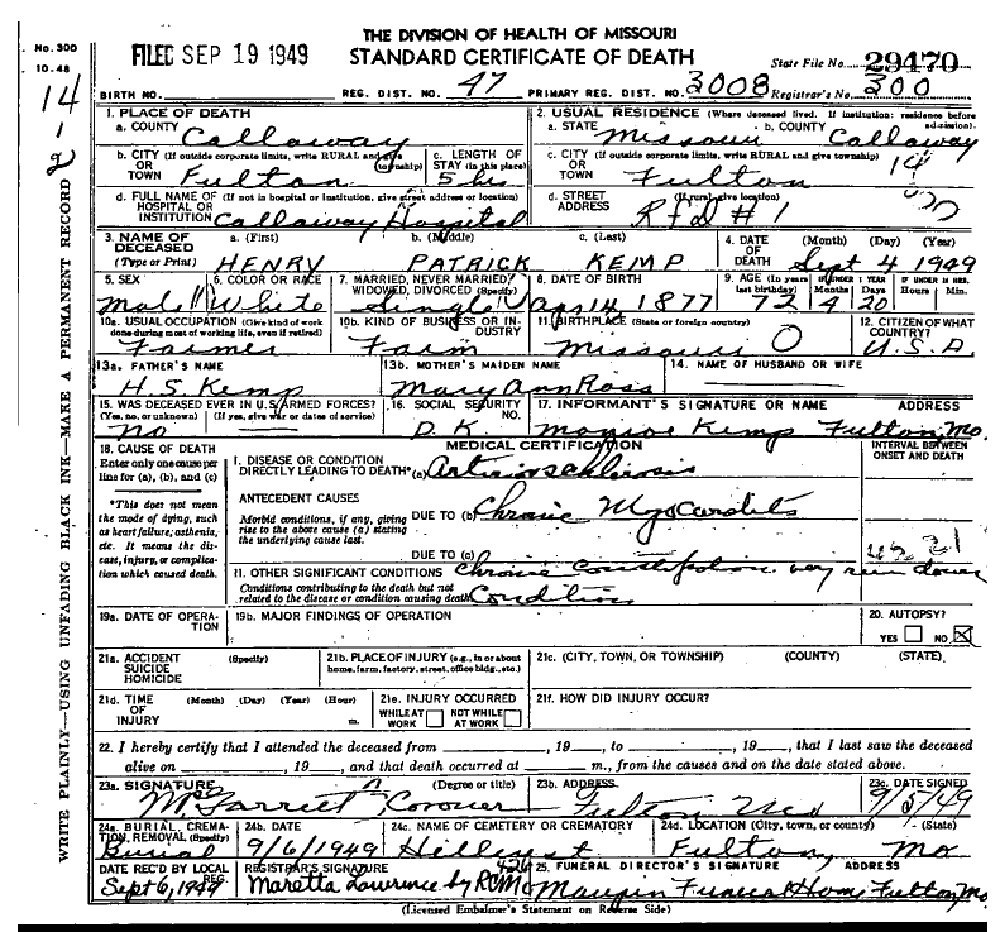 THE DIVISION OF HEALTH OF MISSOURI
No. 300
10-48
FILED SEP 19 1949
STANDARD CERTIFICATE OF DEATH
State File No. 29470
14
1
2
BIRTH NO.
REG. DIST. NO. 47
PRIMARY REG. DIST. NO. 3008
Registrar's No. 300
1. PLACE OF DEATH
a. COUNTY Callaway
2. USUAL RESIDENCE (Where deceased lived. If institution: residence before admission).
a. STATE Missouri b. COUNTY Callaway
b. CITY (If outside corporate limits, write RURAL and give township) OR TOWN Fulton
c. LENGTH OF STAY (in this place) 5 hrs
c. CITY (If outside corporate limits, write RURAL and give township) OR TOWN Fulton 14
d. FULL NAME OF (If not in hospital or institution, give street address or location) HOSPITAL OR INSTITUTION Callaway Hospital
d. STREET ADDRESS (If rural, give location) Rfd #1
3. NAME OF DECEASED (Type or Print)
a. (First) HENRY b. (Middle) PATRICK c. (Last) KEMP
4. DATE OF DEATH (Month) (Day) (Year) Sept 4 1949
5. SEX Male
6. COLOR OR RACE White
7. MARRIED, NEVER MARRIED, WIDOWED, DIVORCED (Specify) Single
8. DATE OF BIRTH Apr 14 1877
9. AGE (In years last birthday) 72 IF UNDER 1 YEAR Months 4 Days 20 IF UNDER 24 HRS. Hours Min.
10a. USUAL OCCUPATION (Give kind of work done during most of working life, even if retired) Farmer
10b. KIND OF BUSINESS OR INDUSTRY Farm
11. BIRTHPLACE (State or foreign country) Missouri O
12. CITIZEN OF WHAT COUNTRY? U.S.A
13a. FATHER'S NAME H. S. Kemp
13b. MOTHER'S MAIDEN NAME Mary Ann Ross
14. NAME OF HUSBAND OR WIFE
15. WAS DECEASED EVER IN U.S. ARMED FORCES? (Yes, no, or unknown) (If yes, give war or dates of service) no
16. SOCIAL SECURITY NO. D.K.
17. INFORMANT'S SIGNATURE OR NAME ADDRESS Monroe Kemp Fulton, Mo.
18. CAUSE OF DEATH
Enter only one cause per line for (a), (b), and (c)
*This does not mean the mode of dying, such as heart failure, asthenia, etc. It means the disease, injury, or complication which caused death.
MEDICAL CERTIFICATION
INTERVAL BETWEEN ONSET AND DEATH
I. DISEASE OR CONDITION DIRECTLY LEADING TO DEATH* (a) Arteriosclerosis
ANTECEDENT CAUSES
Morbid conditions, if any, giving rise to the above cause (a) stating the underlying cause last.
DUE TO (b) Chronic Myocarditis
DUE TO (c)
II. OTHER SIGNIFICANT CONDITIONS Chronic Constipation very run down
Conditions contributing to the death but not related to the disease or condition causing death. Condition
19a. DATE OF OPERATION
19b. MAJOR FINDINGS OF OPERATION
20. AUTOPSY?
YES NO X
21a. ACCIDENT SUICIDE HOMICIDE (Specify)
21b. PLACE OF INJURY (e.g., in or about home, farm, factory, street, office bldg., etc.)
21c. (CITY, TOWN, OR TOWNSHIP) (COUNTY) (STATE)
21d. TIME OF INJURY (Month) (Day) (Year) (Hour) m.
21e. INJURY OCCURRED
WHILE AT WORK NOT WHILE AT WORK
21f. HOW DID INJURY OCCUR?
22. I hereby certify that I attended the deceased from , 19 , to , 19 , that I last saw the deceased
alive on , 19 , and that death occurred at m., from the causes and on the date stated above.
23a. SIGNATURE (Degree or title) Coroner
23b. ADDRESS Fulton
23c. DATE SIGNED 9/5/49
24a. BURIAL, CREMATION, REMOVAL (Specify) Burial
24b. DATE 9/6/1949
24c. NAME OF CEMETERY OR CREMATORY Hillcrest
24d. LOCATION (City, town, or county) (State) Fulton, Mo
DATE REC'D BY LOCAL REG. Sept 6, 1949
REGISTRAR'S SIGNATURE Maretta Lawrence by RCMo 426
25. FUNERAL DIRECTOR'S SIGNATURE ADDRESS Maupin Funeral Home Fulton, Mo
(Licensed Embalmer's Statement on Reverse Side)
WRITE PLAINLY—USING UNFADING BLACK INK—MAKE A PERMANENT RECORD